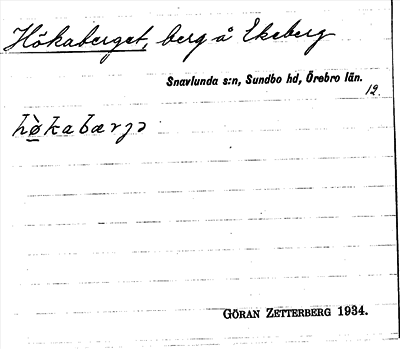 Hökaberget, berg å Ekeberg
Snavlunda s:n, Sundbo hd, Örebro län.
12.
hø̀kabærjə
GÖRAN ZETTERBERG 1934.